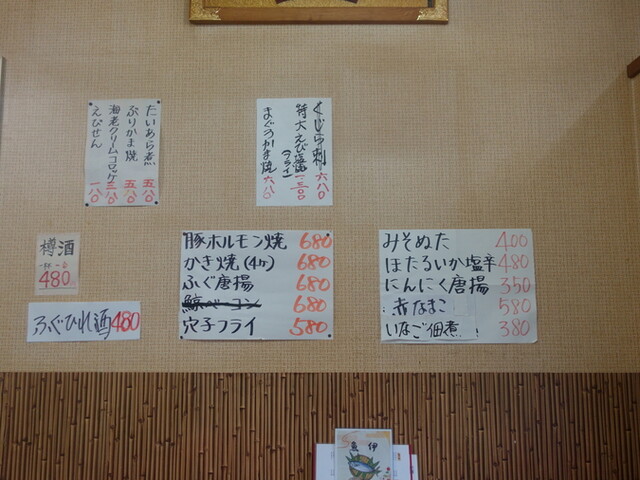 たいあら煮 五八〇
ぶりかま焼 五八〇
海老クリームコロッケ 三八〇
えびせん 一八〇
くじら刺 六八〇
特大えび
(フライ) 一三〇〇
まぐろかま焼 六八〇
樽酒
一杯
480
ふぐひれ酒 480
豚ホルモン焼 680
かき焼(4ヶ) 680
ふぐ唐揚 680
鯨ベーコン 680
穴子フライ 580
みそぬた 400
ほたるいか塩辛 480
にんにく唐揚 350
赤なまこ 580
いなご佃煮 380